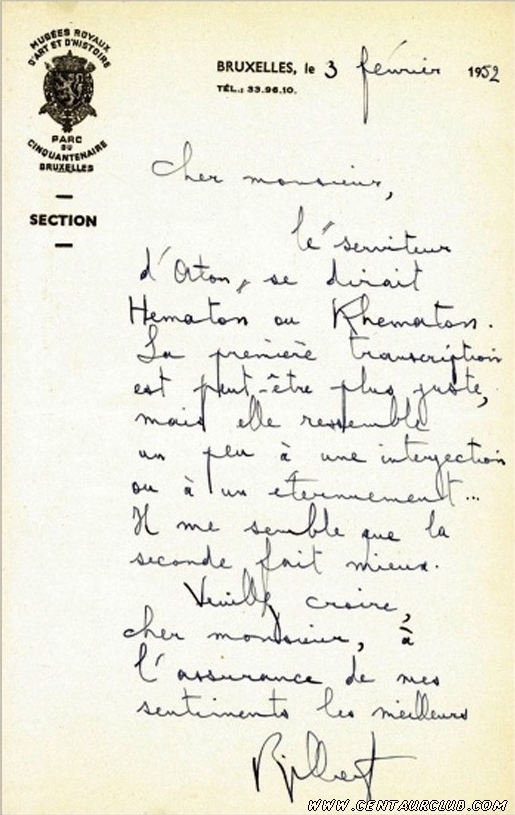 MUSÉES ROYAUX
D'ART ET D'HISTOIRE
PARC
DU
CINQUANTENAIRE
BRUXELLES
SECTION
BRUXELLES, le 3 février 1952
TÉL.: 33.96.10.
Cher monsieur,
le "serviteur
d'Aton" se dirait
Hematon ou Rhematon.
La première transcription
est peut-être plus juste,
mais elle ressemble
un peu à une interjection
ou à un éternuement...
Il me semble que la
seconde fait mieux.
Veuillez croire,
cher monsieur, à
l'assurance de mes
sentiments les meilleurs
WWW.CENTAURCLUB.COM